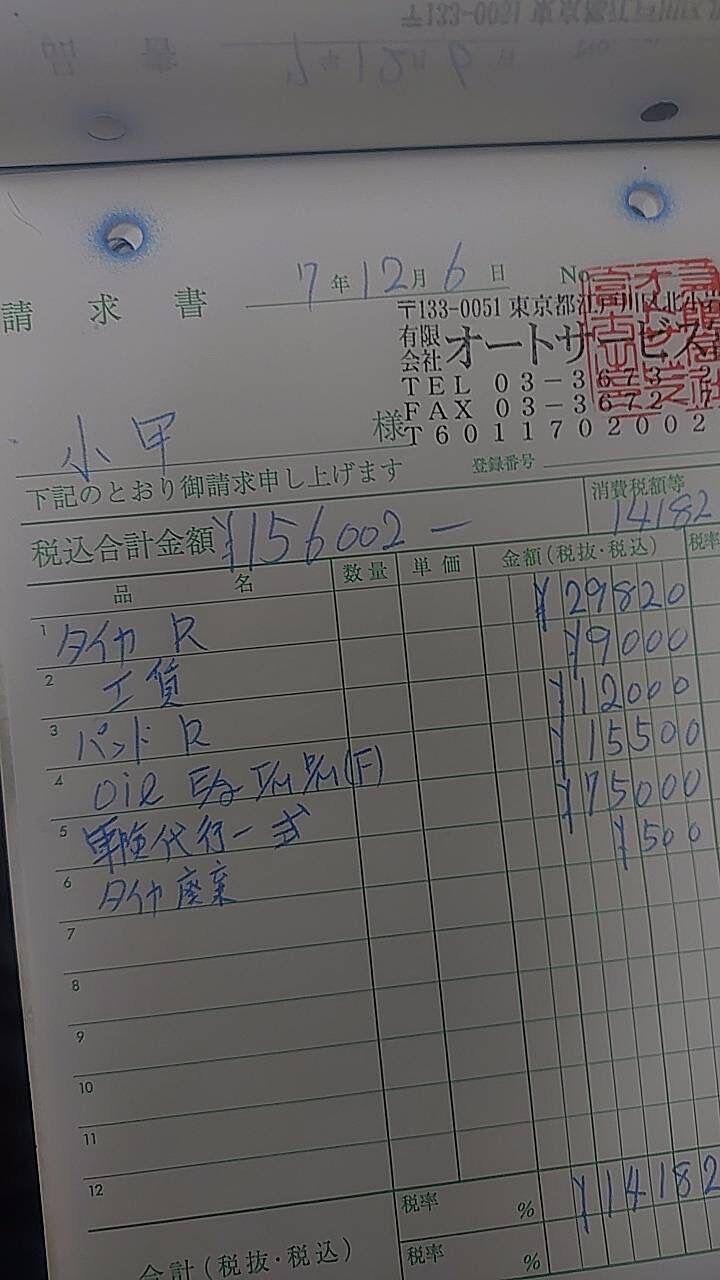 〒133-0051 東京都江戸川区
請求書 7年12月6日 No.
〒133-0051 東京都江戸川区北小岩
有限会社 オートサービス
TEL 03-3673-2
FAX 03-3672-7
T6011702002
小甲 様
登録番号
下記のとおり御請求申し上げます
消費税額等
税込合計金額 ¥156002- 14182
品名 数量 単価 金額(税抜・税込) 税率
1 タイヤ R ¥29820
2 工賃 ¥9000
3 パッド R ¥12000
4 oil E/g T/M D/M(F) ¥15500
5 車険代行一式 ¥75000
6 タイヤ廃棄 ¥500
7
8
9
10
11
12
税率 % ¥14182
合計(税抜・税込) 税率 %